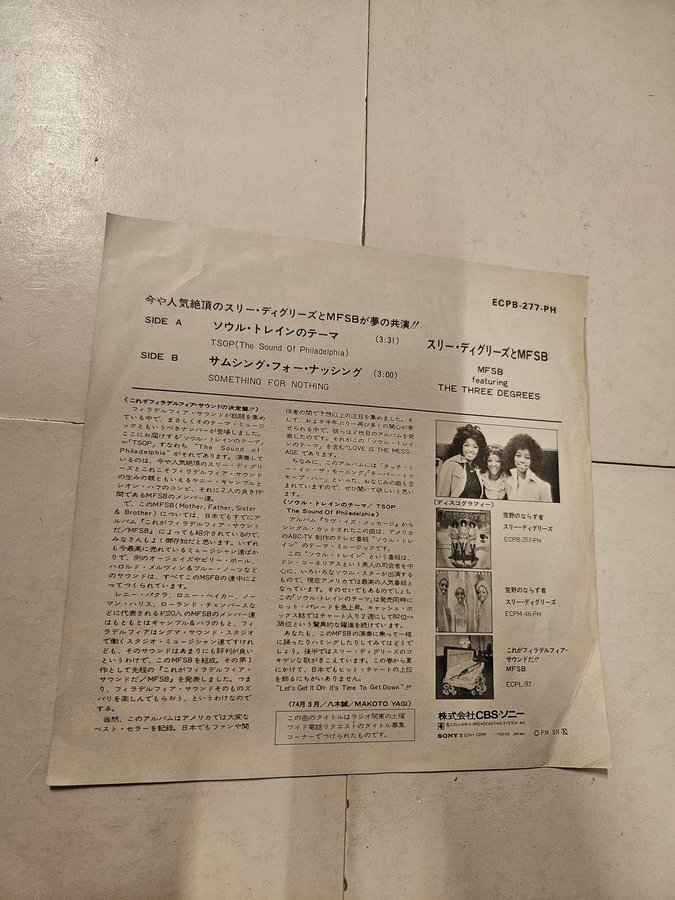 ECPB-277-PH
今や人気絶頂のスリー・ディグリーズとMFSBが夢の共演!!
SIDE A ソウル・トレインのテーマ (3:31)
TSOP(The Sound Of Philadelphia)
SIDE B サムシング・フォー・ナッシング (3:00)
SOMETHING FOR NOTHING
スリー・ディグリーズとMFSB
MFSB
featuring
THE THREE DEGREES
〈これぞフィラデルフィア・サウンドの決定盤!!〉
フィラデルフィア・サウンドが話題を集め
ている中で、まさしくそのテーマ・ミュージ
ックともいうべきナンバーが登場しました。
ここにお届けする「ソウル・トレインのテーマ」
=「TSOP」すなわち "The Sound of
Philadelphia" がそれであります。演奏して
いるのは、今や人気絶頂のスリー・ディグリ
ーズとこれこそフィラデルフィア・サウンド
の生みの親ともいえるケニー・ギャンブルと
レオン・ハフのコンビ、それに2人の良き仲
間であるMFSBのメンバー達。
で、このMFSB(Mother, Father, Sister
& Brother)については、日本でもすでにア
ルバム『これがフィラデルフィア・サウンド
だ/MFSB』によっても紹介されているので、
みなさんもよく御存知だと思います。いずれ
も今最高に売れているミュージシャン達ばか
りで、例のオージェイズやビリー・ポール、
ハロルド・メルヴィン&ブルー・ノーツなど
のサウンドは、すべてこのMSFBの連中によ
ってつくられています。
レニー・パクラ、ロニー・ベイカー、ノー
マン・ハリス、ローランド・チェンバースな
どに代表されるおよそ20人のMFSBのメンバー達
はもともとはギャンブル&ハフのもと、フィ
ラデルフィアはシグマ・サウンド・スタジオ
で働くスタジオ・ミュージシャン達ですけれ
ども、そのサウンドはあまりにも評判が良い
というわけで、このMFSBを結成。その第1
作として先程の『これがフィラデルフィア・
サウンドだ/MFSB』を発表しました。つま
り、フィラデルフィア・サウンドそのものズ
バリを楽しんでもらおう、というわけなので
すネ。
当然、このアルバムはアメリカでは大変な
ベスト・セラーを記録。日本でもファンや関
係者の間で予想以上の注目を集めました。そ
して、およそ半年ぶり一再び多くの関心が寄
せられる中で、彼らは2枚目のアルバムを発
表したのです。それがこの「ソウル・トレイ
ンのテーマ」を含む"LOVE IS THE MESS-
AGE であります。
ちなみに、このアルバムには「タッチ・ミ
ー・イン・ザ・モーニング」「チーパー・トゥ・
キープ・ハー」といった、おなじみの曲も含
まれていますので、ぜひ聞いて欲しいと思い
ます。
〈ソウル・トレインのテーマ/TSOP
The Sound Of Philadelphia〉
アルバム『ラヴ・イズ・メッセージ』から
シングル・カットされたこの曲は、アメリカ
のABC-TV 制作のテレビ番組 "ソウル・トレ
イン" のテーマ・ミュージックです。
この "ソウル・トレイン" という番組は、
ドン・コーネリアスという黒人の司会者を中
心に、いろいろなソウル・スターが出演する
もので、現在アメリカでは最高の人気番組と
なっています。そのせいでもあるのでしょう。
この「ソウル・トレインのテーマ」は発売同時に
ヒット・パレードを急上昇。キャッシュ・ボ
ックス誌ではチャート入り2週にして82位→
38位という驚異的な躍進を続けています。
あなたも、このMFSBの演奏に乗って一緒
に踊ったりハミングしたりしてみてはどうで
しょう。後半ではスリー・ディグリーズのゴ
キゲンな歌がきこえています。この春から夏
にかけて、日本でもヒット・チャートの上位
を飾るにちがいありません。
"Let's Get It On It's Time To Get Down"!!
〈74月3月/八木誠/MAKOTO YAGI〉
この曲のタイトルはラジオ関東の土曜
ワイド電話リクエストのタイトル募集
コーナーでつけられたものです。
〔ディスコグラフィー〕
荒野のならず者
スリー・ディグリーズ
ECPB-257-PH
荒野のならず者
スリー・ディグリーズ
ECPM-46-PH
これがフィラデルフィア・
サウンドだ!!
MFSB
ECPL-97
株式会社CBS・ソニー
COLUMBIA BROADCASTING SYSTEM INC.
SONY SONY CORP (TOKYO JAPAN) ⓒⓅM SN Ⓚ